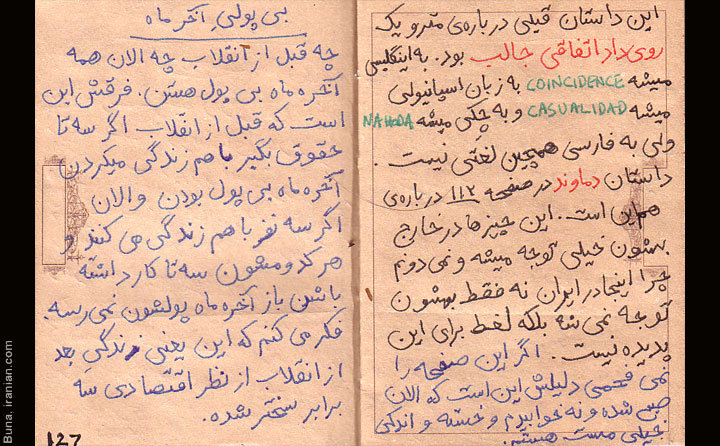 این داستان قبلی درباره‌ی مترو یک
روی‌داد اتفاقی جالب بود. به اینگلیسی
میشه COINCIDENCE به زبان اسپانیولی
میشه CASUALIDAD و به چکی میشه NAHODA
ولی به فارسی همچین لغتی نیست.
داستان دماوند در صفحه ۱۱۲ درباره‌ی
هم‌این است. این چیزها در خارج
بهشون خیلی توجه میشه و نمی دونم
چرا اینجا در ایران نه فقط بهشون
توجه نمی شه بلکه لغط برای این
پدیده نیست. اگر این صفحه را
نمی فهمی دلیلش این است که الان
صبح شده و نه خوابیدم و خسته و اندکی
خیلی مست هستم.
بی پولیِ آخر ماه
چه قبل از انقلاب چه الان همه
آخره ماه بی پول هستن. فرقش این
است که قبل از انقلاب اگر سه تا
حقوق بگیر با هم زندگی میکردن
آخره ماه بی پول بودن و الان
اگر سه نفر با هم زندگی می کنند و
هر کدومشون سه تا کار داشته
باشن باز آخره ماه پولشون نمی رسه.
فکر می کنم که این یعنی زندگیِ بعد
از انقلاب از نظر اقتصادی سه
برابر سختر شده.
127
Buna, iranian.com